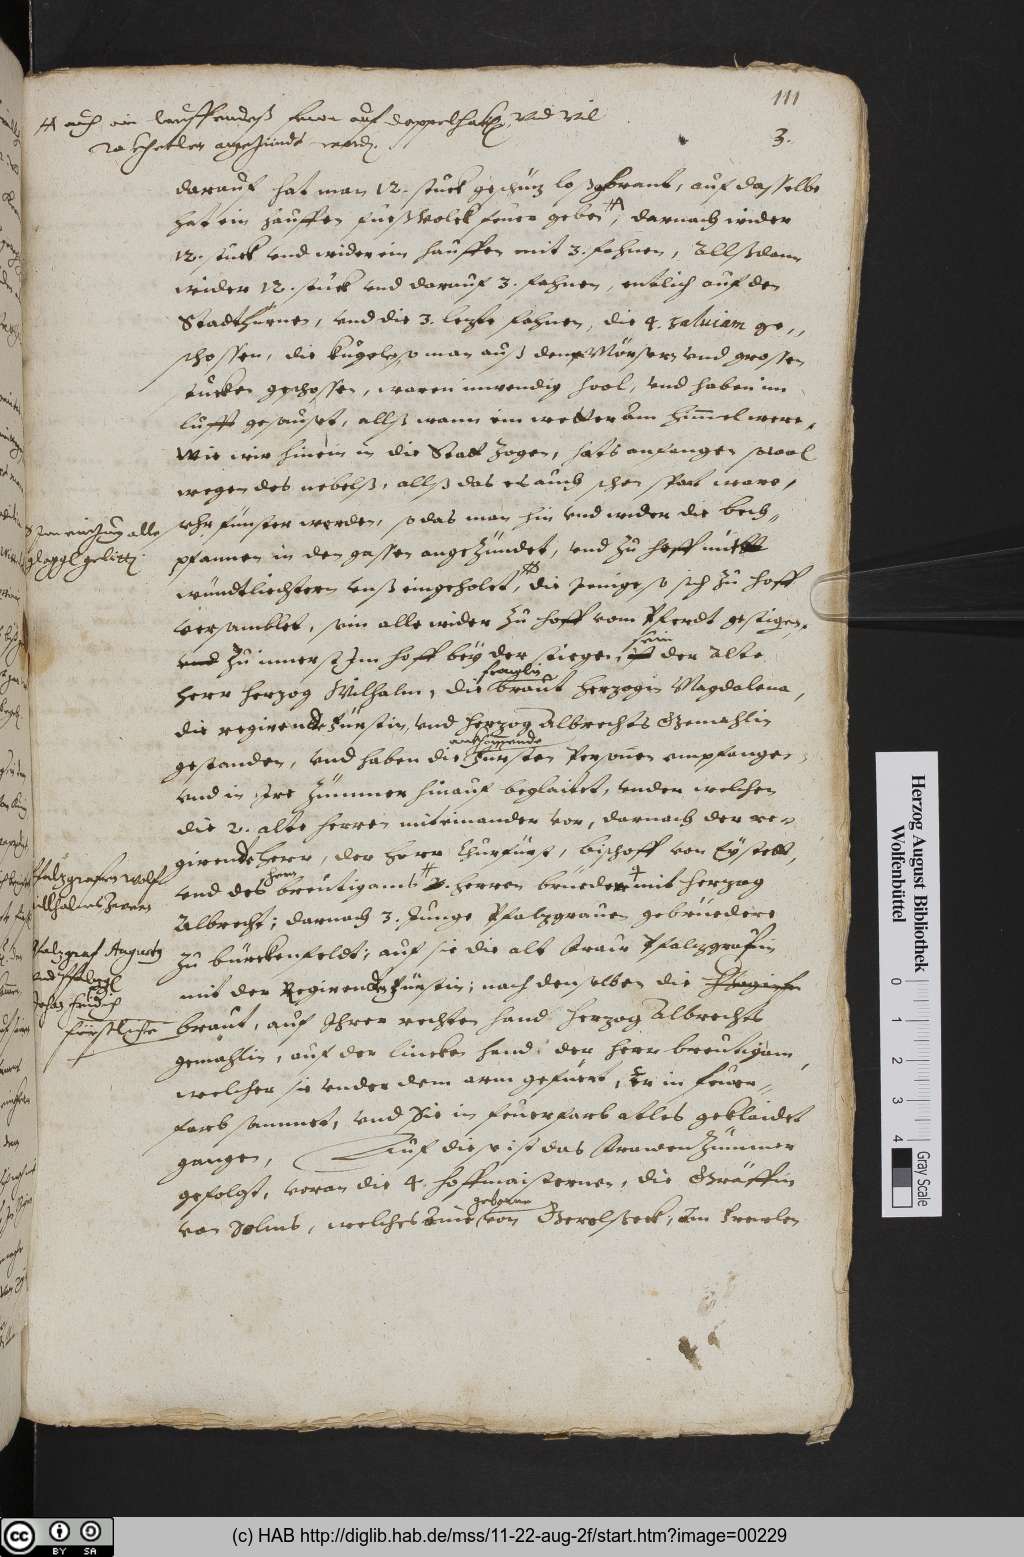 111
3.
# auch ein lauffendeß feur auf doppelhakhen, vnd vil
angezündt worden.
darauf hat man 12. stuck geschüz loß gebrant, auf dasselbe
hat ein hauffen fueßvolck feuer geben #, darnach wider
12. stuck vnd wider ein hauffen mit 3. fahnen, Allßdann
wider 12. stuck vnd darauf 3. fahnen, entlich auf den
Stadtthurnen, vnd die 3. lezte fahnen, die 4. salvam ge,,
schossen, die kugelen so man auß den Mörsern vnd grossen
stucken geschossen, waren inwendig hool, vnd haben im
lufft gesaust, allß wann ein wetter am himmel were.
Wie wir hinein in die Statt zogen, hats anfangen sowol
wegen des nebelß, allß das es auch schon spat ware,
finster werden, so das man hin vnd wider die bech,,
pfannen in den gassen angezündet, vnd zu hoff mit
windtliechtern vnß eingeholet, # die Jenige so sich zu hoff
versamblet, sein alle wider zu hoff vom Pferdt gestigen,
vnd zu innerst Im hoff bey der stiegen, ist sein der alte
herr herzog Wilhalm, die freulin braut herzogin Magdalena,
die regirende Fürstin, vnd herzog Albrechts Gemahlin
gestanden, vnd haben die ankommende Fürsten Personen empfangen,
vnd in Ire Zimmer hinauf beglaitet, vnder welchen
die 2. alte herren miteinander vor, darnach der re,,
girende herr, der herr Churfürst, bischoff von Eystett,
vnd des hern breutigams # 2. herren brüeder mit herzog
Albrecht; darnach 3. Junge Pfalzgrauen gebrüedere
zu Bürckenfeldt; auf sie die alt Fraw Pfalzgräfin
mit der Regirenden Fürstin; nach denselben die
braut, auf Ihrer rechten hand herzog Albrechts
gemahlin, auf der lincken hand der herr breutigam,
welcher sie vnder dem arm gefüert, Er in feuer,,
farb sammet, vnd Sie in feuerfarb atlas geklaidet
gangen, Auf dise ist das Frawenzimmer
gefolgt, voran die 4. hoffmaisterinen, die Gräffin
von Solms, welches eine geborne von Gerolßeck, am
Im einzug alle
gloggen gelitten
Pfalzgrafen Wolf
Willhalms herren
Pfalzgraf Augusts
vnd Pfalzgraf
Johan Fridrich
Fürstliche
Herzog August Bibliothek
Wolfenbüttel
0 1 2 3 4
Gray Scale
cc BY SA
(c) HAB http://diglib.hab.de/mss/11-22-aug-2f/start.htm?image=00229